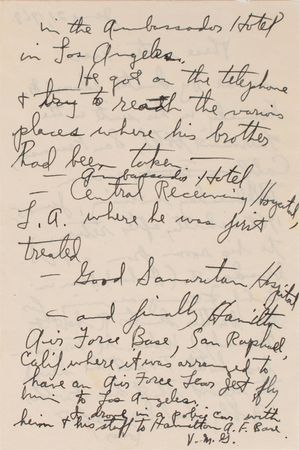 in the Ambassador Hotel
in Los Angeles.
He got on the telephone
& try to reach the various
places where his brother
had been taken —
— Ambassador Hotel
— Central Receiving Hospital,
L.A. where he was first
treated
— Good Samaritan Hospital
— and finally Hamilton
Air Force Base, San Raphael,
Calif. where it was arranged to
have an Air Force Lear jet fly
him to Los Angeles.
I drove in a police car with
him & his staff to Hamilton A.F. Base.
V.M.G.